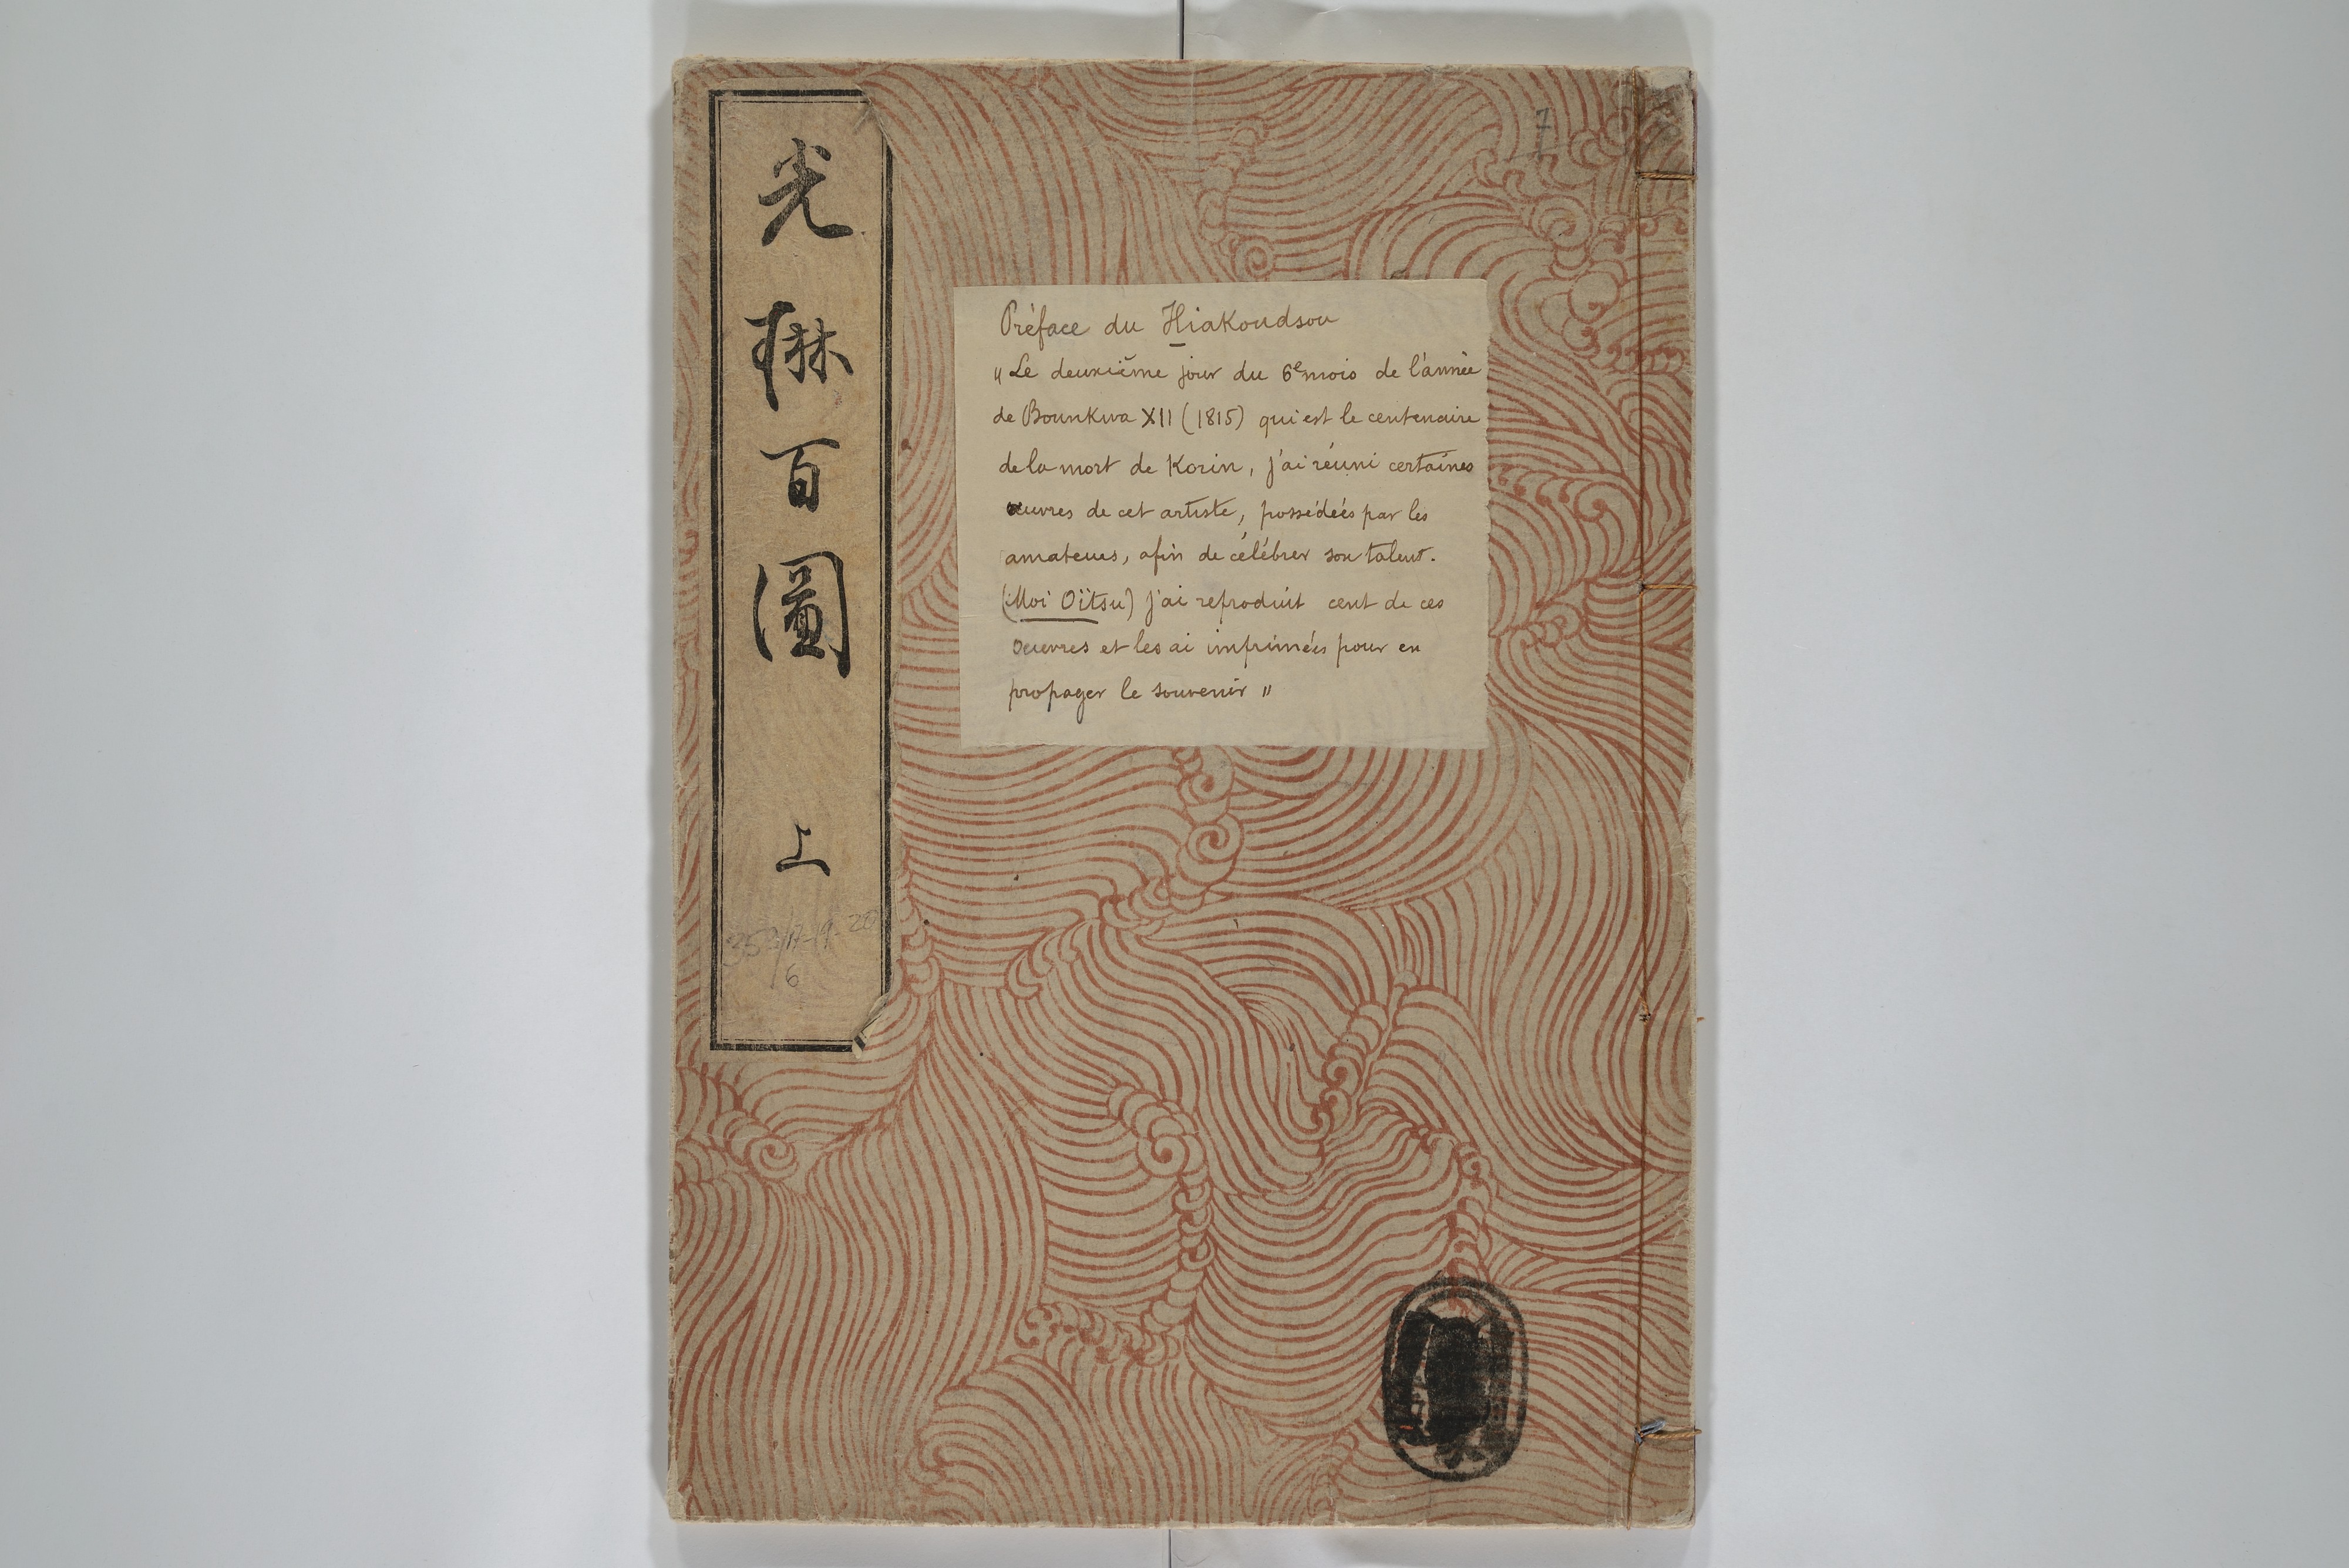 光琳百圖 上
353/17-19-20
6
7
Préface du Hiakoudsou
"Le deuxième jour du 6e mois de l'année
de Bounkwa XII (1815) qui est le centenaire
de la mort de Korin, j'ai réuni certaines
œuvres de cet artiste, possédées par les
amateurs, afin de célébrer son talent.
(Moi Oïtsu) j'ai reproduit cent de ces
œuvres et les ai imprimées pour en
propager le souvenir"